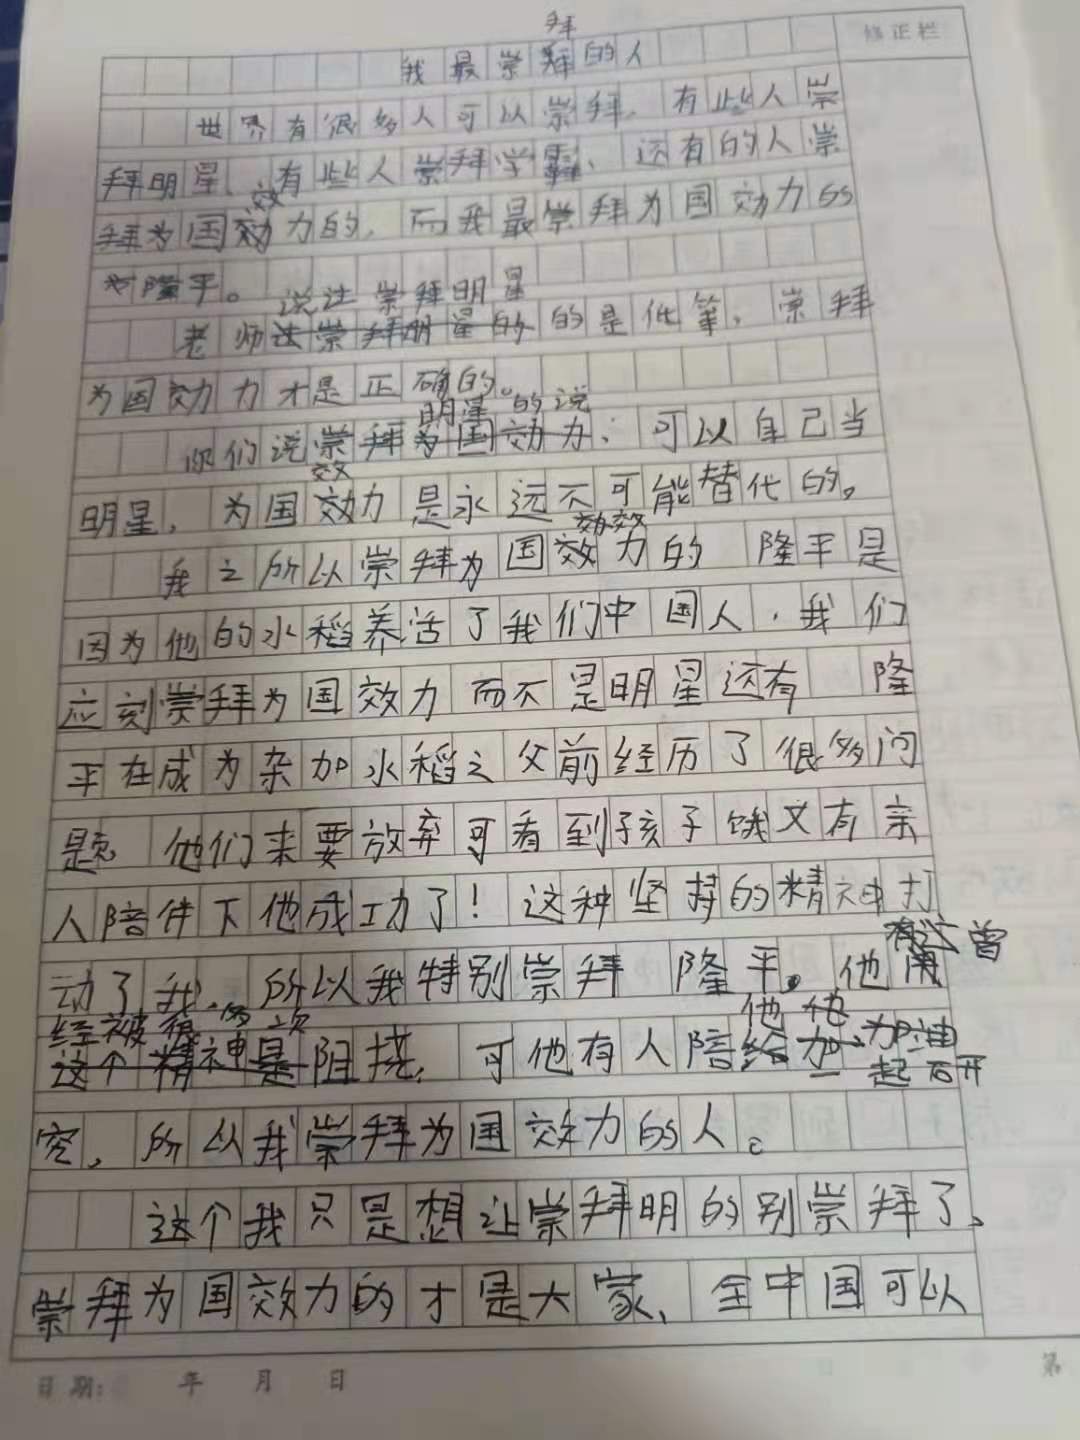 拜
修正栏
我最崇拜的人
世界有很多人可以崇拜,有些人崇
拜明星、有些人崇拜学霸、还有的人崇
效
拜为国效力的,而我最崇拜为国效力的
隆平。
说法崇拜明星
老师法崇拜明星的的是低等,崇拜
为国效力才是正确的。
明星的说
你们说崇拜为国效力,可以自己当
效
明星,为国效力是永远不可能替代的。
效效
我之所以崇拜为国效力的 隆平是
因为他的水稻养活了我们中国人,我们
应刻崇拜为国效力而不是明星还有 隆
平在成为杂加水稻之父前经历了很多问
题 他们来要放弃可看到孩子饿又有亲
人陪伴下他成功了!这种坚持的精神打
动了我,所以我特别崇拜 隆平。他
曾
经被很多次
他他
这个精神是阻挠,可他有人陪给加加油
起后开
究,所以我崇拜为国效力的人。
这个我只是想让崇拜明的别崇拜了、
崇拜为国效力的才是大家、全中国可以
日期: 年 月 日
第